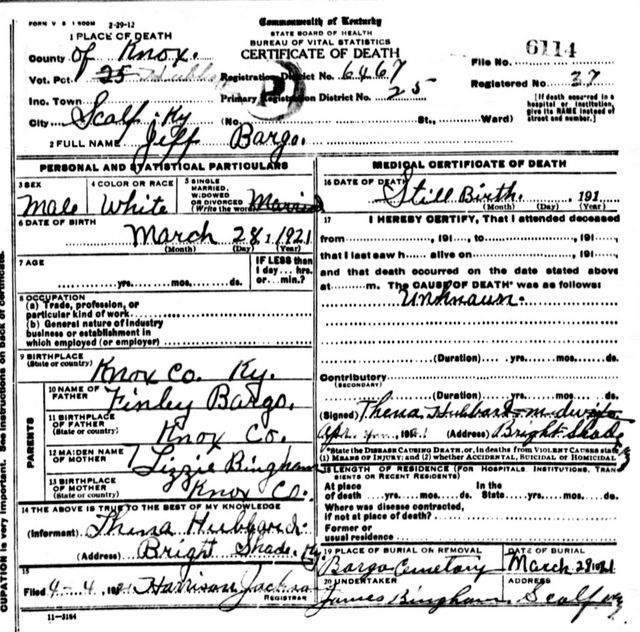 FORM V S 1 500M 2-29-12
Commonwealth of Kentucky
STATE BOARD OF HEALTH
BUREAU OF VITAL STATISTICS
CERTIFICATE OF DEATH
1 PLACE OF DEATH
County of Knox.
Vot. Pct 25
Inc. Town
City Scalf, Ky (No. St., Ward)
Registration District No. 6467
Primary Registration District No. 25
File No. 6114
Registered No. 37
[If death occurred in a hospital or institution, give its NAME instead of street and number.]
2 FULL NAME Jeff Bargo.
PERSONAL AND STATISTICAL PARTICULARS
3 SEX Male
4 COLOR OR RACE White
5 SINGLE MARRIED, WIDOWED OR DIVORCED (Write the word) Married
6 DATE OF BIRTH March 28, 1921
(Month) (Day) (Year)
7 AGE
yrs. mos. ds.
IF LESS then 1 day... hrs. or... min.?
8 OCCUPATION
(a) Trade, profession, or particular kind of work
(b) General nature of industry business or establishment in which employed (or employer)
9 BIRTHPLACE (State or country) Knox Co. Ky.
PARENTS
10 NAME OF FATHER Finley Bargo.
11 BIRTHPLACE OF FATHER (State or country) Knox Co.
12 MAIDEN NAME OF MOTHER Lizzie Bingham
13 BIRTHPLACE OF MOTHER (State or country) Knox Co.
14 THE ABOVE IS TRUE TO THE BEST OF MY KNOWLEDGE
(Informant) Thena Hubbard
(Address) Bright Shade Ky
15
Filed 4-4, 1921 Harrison Jackson
REGISTRAR
11-3184
MEDICAL CERTIFICATE OF DEATH
16 DATE OF DEATH Still Birth. 191
(Month) (Day) (Year)
17 I HEREBY CERTIFY, That I attended deceased
from, 191, to, 191,
that I last saw h alive on, 191,
and that death occurred on the date stated above
at m. The CAUSE OF DEATH* was as follows:
Unknaun.
(Duration) yrs. mos. ds.
Contributory
(SECONDARY)
(Duration) yrs. mos. ds.
(Signed) Thena Hubbard midwife
(Address) Bright Shade
*State the DISEASE CAUSING DEATH, or, in deaths from VIOLENT CAUSES state (1) MEANS OF INJURY; and (2) whether ACCIDENTAL, SUICIDAL or HOMICIDAL
18 LENGTH OF RESIDENCE (FOR HOSPITALS, INSTITUTIONS, TRANSIENTS OR RECENT RESIDENTS)
At place of death yrs. mos. ds.
In the State yrs. mos. ds.
Where was disease contracted, if not at place of death?
Former or usual residence
19 PLACE OF BURIAL OR REMOVAL Bargo Cemetary
DATE OF BURIAL March 28 1921
20 UNDERTAKER James Bingham
ADDRESS Scalf Ky
CUPATION is very important. See instructions on back of certificate.